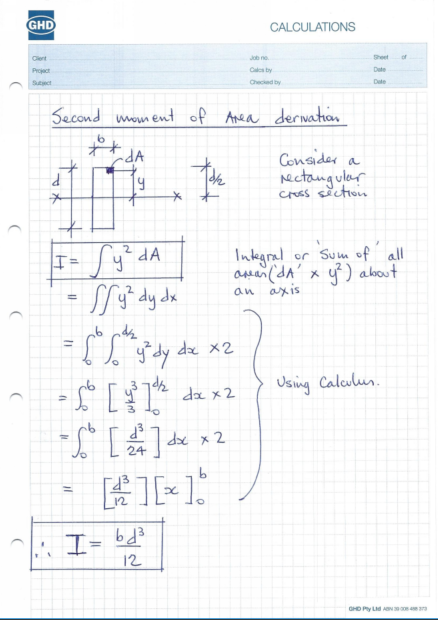 GHD
CALCULATIONS
Client
Job no.
Sheet of
Project
Calcs by
Date
Subject
Checked by
Date
Second moment of Area derivation
b
dA
d
y
d/2
x x
Consider a
rectangular
cross section
I = ∫ y² dA
Integral or 'Sum of' all
areas ('dA' x y²) about
an axis
= ∬ y² dy dx
= ∫₀ᵇ ∫₀^(d/2) y² dy dx × 2
= ∫₀ᵇ [y³/3]₀^(d/2) dx × 2
Using Calculus.
= ∫₀ᵇ [d³/24] dx × 2
= [d³/12] [x]₀ᵇ
∴ I = bd³/12
GHD Pty Ltd ABN 39 008 488 373